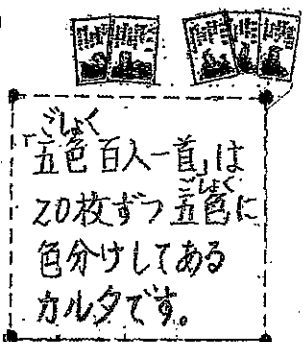 「五色百人一首」は
20枚ずつ五色に
色分けしてある
カルタです。